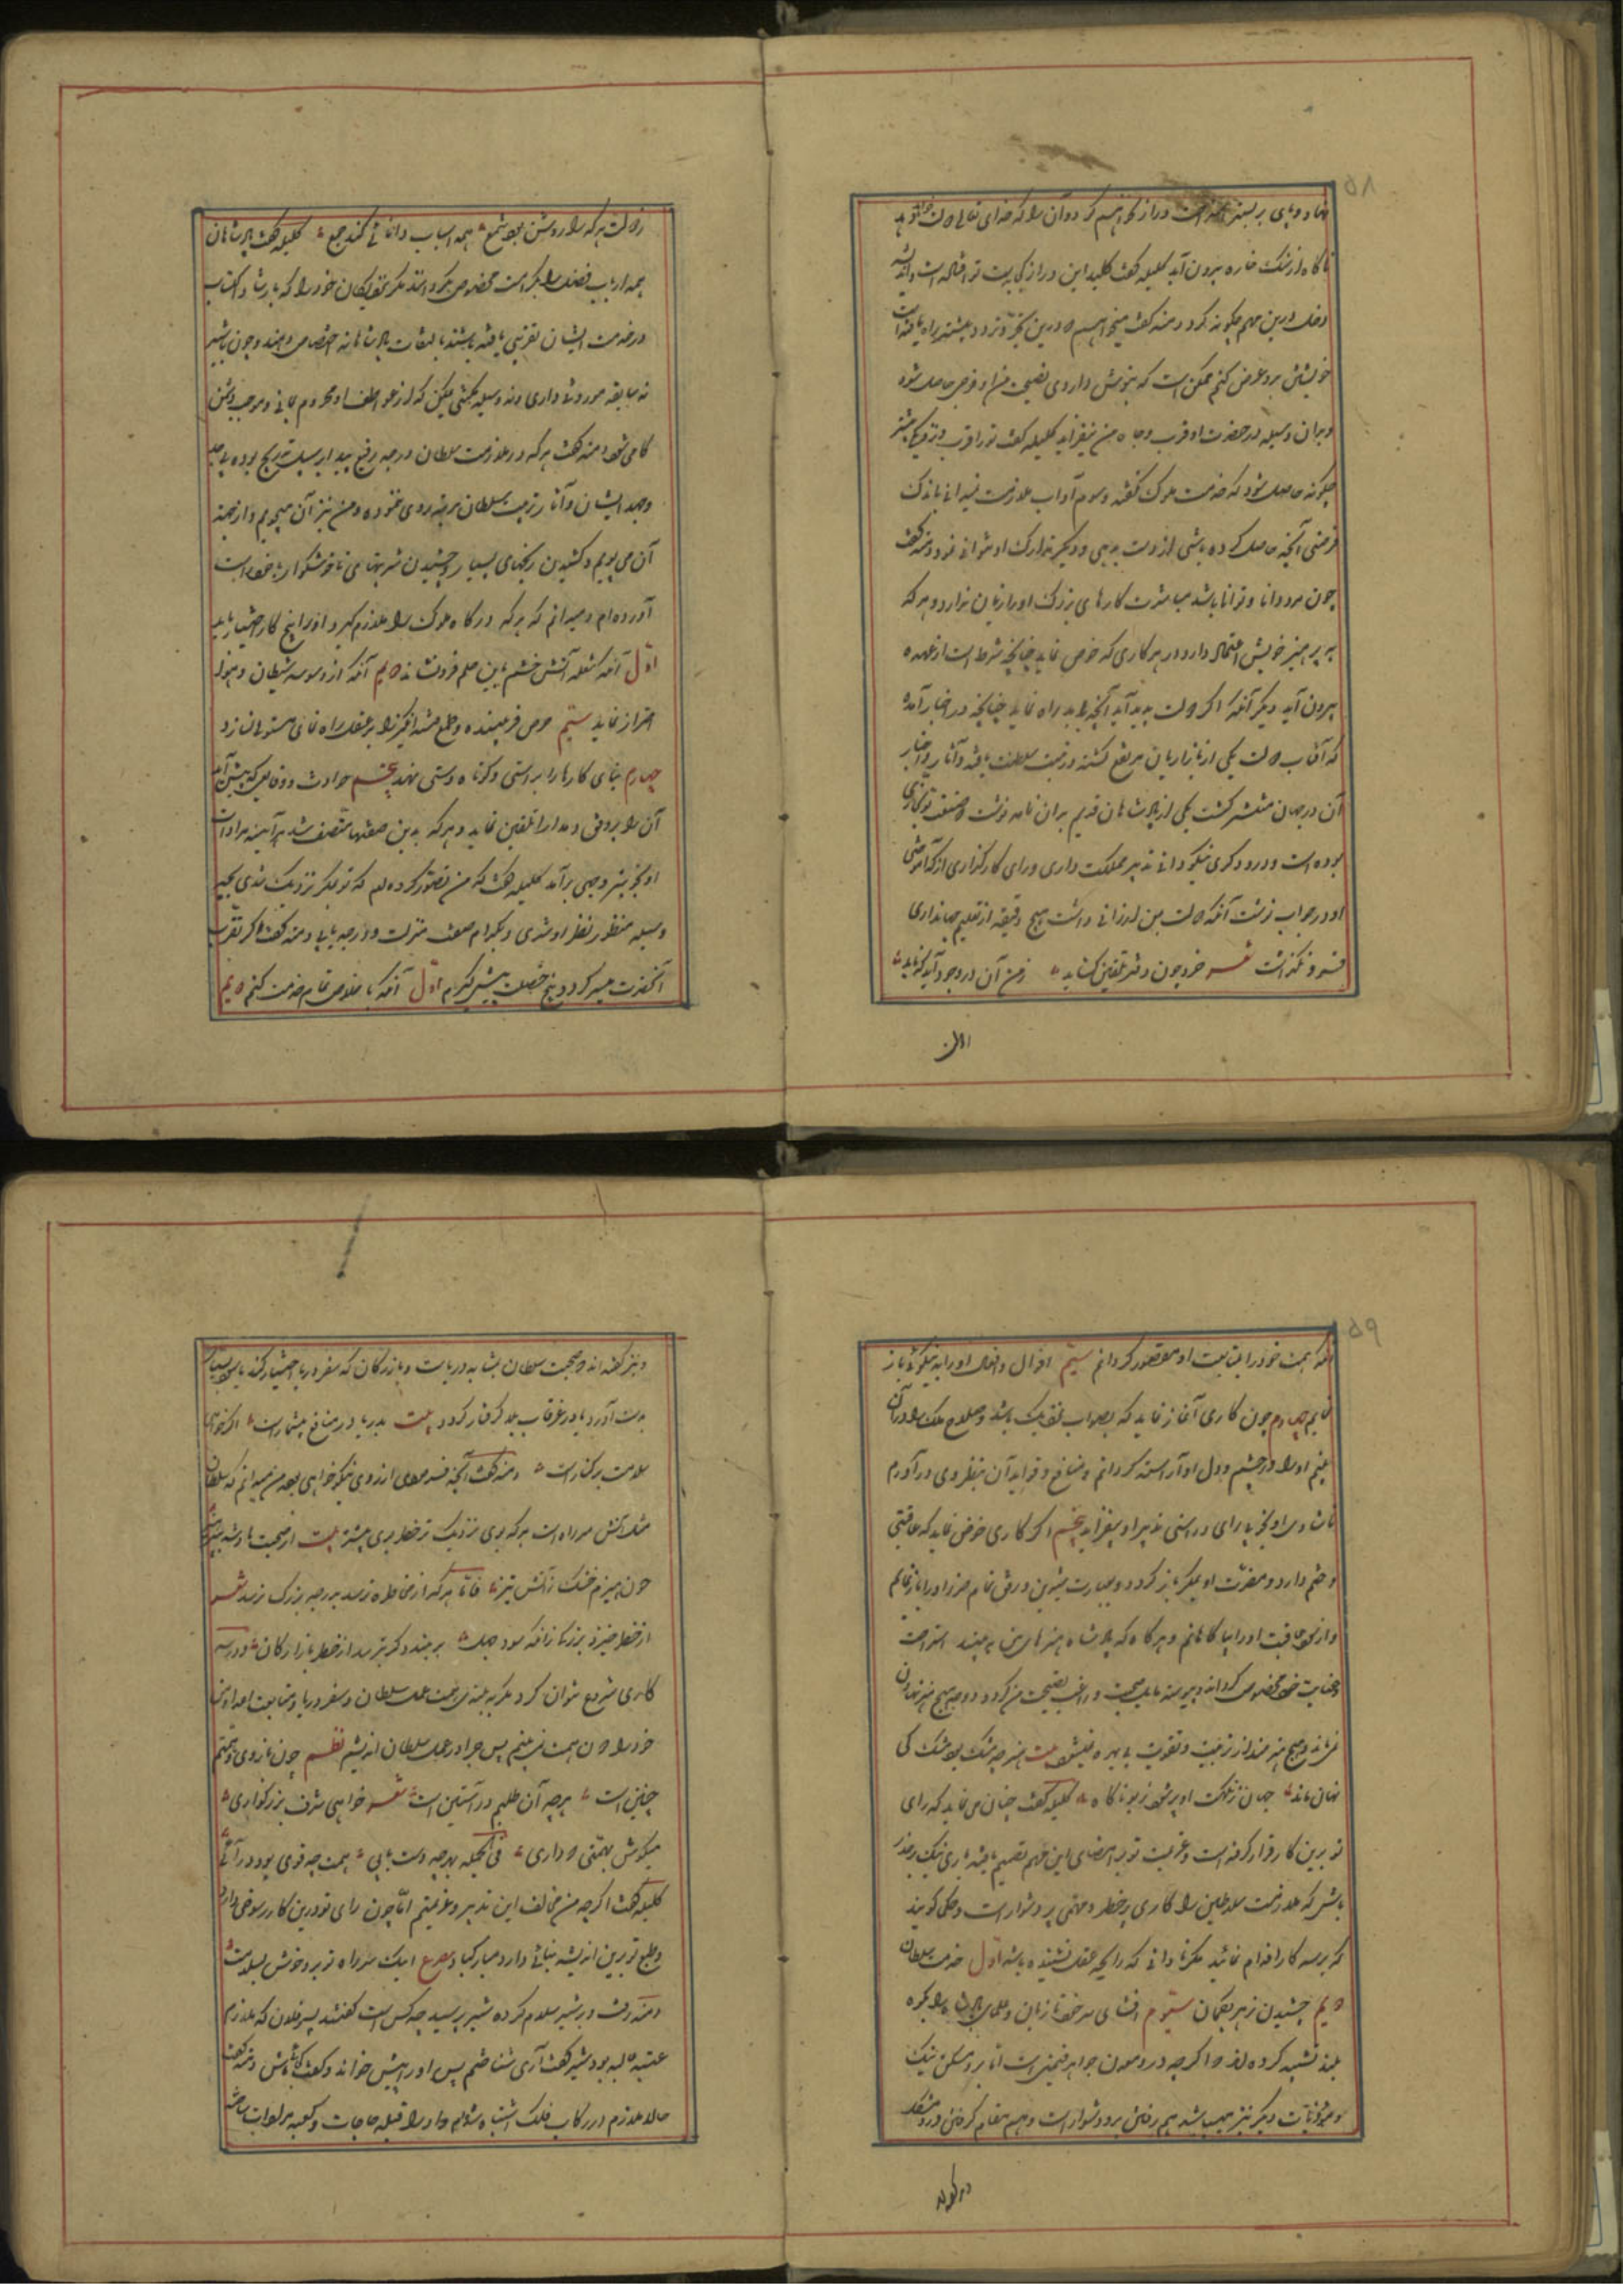 ۵۸
نهاد و پای بر بستر دراز نخواهم کرد و آن را که خدای تعالی دولت خواهد داد
ناگاه از سنگ خاره بیرون آید کلیله گفت کلید این در از کجا بدست تو افتاده است و اندیشه
دخل درین مهم چگونه کرد دمنه گفت میخواهم درین تحیر و تردد که بشیر راه یافته است
خویشتن برو عرض کنم ممکن است که بنوش داروی نصیحت من او را فرحی حاصل شود
و بدان وسیله در حضرت او قرب و جاه من بیفزاید کلیله گفت ترا قرب و نزدیکی شیر
چگونه حاصل شود که خدمت ملوک نکرده و رسوم آداب ملازمت نمیدانی باندک
فرصتی آنچه حاصل کرده باشی از دست بدهی و دیگر تدارک او نتوانی نمود دمنه گفت
چون مرد دانا و توانا باشد مباشرت کارهای بزرگ او را زیان ندارد و هر که
به هنر خویش اعتماد دارد در هر کاری که خوض نماید چنانچه شرط است از عهده
بیرون آید دیگر آنکه اگر دولت پدید آید آنچه باید راه نماید چنانچه در اخبار آمده
که آفتاب دولت یکی از بازاریان مرتفع گشته و رتبت سلطنت یافته و آثار و اخبار
آن در جهان منتشر گشت یکی از پادشاهان قدیم بدان نامه نوشت که صنعت تو نجاری
بوده است و درودگری نیکو دانی تدبیر مملکت داری و رای کارگذاری از که آموختی
او در جواب نوشت آنکه دولت بمن ارزانی داشت هیچ دقیقه از تعلیم جهانداری
فرو نگذاشت شعر خرد چون دفتر تلقین گشاید ز من آن در وجود آید که باید
الن
ز دولت هر که را روشن بود شمع همه اسباب دانائی کند جمع کلیله گفت پادشاهان
همه ارباب فضل را بکرامت مخصوص نگردانند بلکه نزدیکان خود را که بارث و اکتساب
در خدمت ایشان تقربی یافته باشند بالتفات پادشاهانه اختصاص دهند و چون با شیر
نه سابقه موروث داری و نه وسیله مکتسب یمکن که از عواطف او محروم مانی و موجب دشمن
کامی شود دمنه گفت هر که در ملازمت سلطان درجه رفیع یابد بر سبیل تدریج بوده بی جد
و جهد ایشان و آثار تربیت سلطان مرتبه روی ننموده و من نیز آن میجویم و از جهت
آن می پویم و کشیدن رنجهای بسیار و چشیدن شربتهای ناخوشگوار با خود راست
آورده ام و میدانم که هر که درگاه ملوک را ملازم گیرد او را پنج کار اختیار باید
اول آنکه شعله آتش خشم بآب حلم فرو نشاند دویم آنکه از وسوسه شیطان و هوا
احتراز نماید سیم حرص فریبنده و طمع فتنه انگیز را بر عقل راه نمای مستولی نسازد
چهارم بنای کارها را بر راستی و کوتاه دستی نهد پنجم حوادث و وقایعی که پیش آید
آن را برفق و مدارا تلقین نماید و هر که بدین صفتها متصف شد هر آینه مرادات
او بخوبتر وجهی برآید کلیله گفت که من تصور کرده ام که تو بملک نزدیک شدی بچه
وسیله منظور نظر او شدی و بکدام صفت منزلت و درجه یابی دمنه گفت اگر تقرب
آنحضرت میسر گردد پنج خصلت پیش گیرم اول آنکه باخلاص تمام خدمت کنم دویم
۵۹
آنکه همت خود را بر متابعت او مقصور گردانم سیم افعال و اقوال او را به نیکوئی باز
نمایم چهارم چون کاری آغاز نماید که بصواب نزدیک باشد و صلاح ملک را در آن
بینم او را در چشم و دل او آراسته گردانم و منافع و فواید آن بنظر وی درآورم
تا شادی او بخوبی رای و راستی تدبیر او بیفزاید پنجم اگر کاری خوض نماید که عاقبتی
وخیم دارد و مضرت او بملک باز گردد بعبارت شیرین و رفق تمام ضرر او را باز نمایم
و از سوء عاقبت او را بیاگاهانم و هر گاه که پادشاه هنرهای من به بیند التفات
و عنایت خود مخصوص گرداند و پیوسته مایل صحبت و راغب نصیحت من گردد و هیچ هنر نهان
نماند و هیچ هنرمند از تربیت و تقویت بی بهره نیست بیت هنر چو مشک بود مشک کی
نهان ماند جهان ز نکهت او پر شود به ناگاه کلیله گفت چنان می نماید که رای
تو برین کار قرار گرفته است و عزیمت تو بر امضای این مهم تصمیم یافته باری نیک بر حذر
باش که ملازمت سلاطین را کاری پر خطر و مهمی پر دشوار است و حکما گویند
که بر سه کار اقدام ننماید مگر نادانی که رایحه عقل نشنیده باشد اول خدمت سلطان
دویم چشیدن زهر بگمان سیوم افشای سر خود با زنان و حکما پادشاه را بکوه
بلند تشبیه کرده اند اگر چه درو معدن جواهر قیمتی است اما برو مسکن پلنگ
و موذیات دیگر نیز میباشد هم رفتن برو دشوار است و هم مقام کردن درو مشکل
و نیز گفته اند صحبت سلطان بمثابه دریاست و بازرگان که سفر دریا اختیار کند یا سود بسیار
بدست آرد یا در غرقاب بلا گرفتار گردد بیت بدریا در منافع بیشمار است اگر خواهی
سلامت بر کنار است دمنه گفت آنچه فرمودی از روی نیکو خواهی بود من میدانم که سلطان
مثل آتش سوزان است هر که بوی نزدیک تر خطر بوی بیشتر بیت از صحبت پادشه بپرهیز
چون هیزم خشک ز آتش تیز فاما هر که از مخاطره ترسد بدرجه بزرگ نرسد شعر
از خطر خیزد بزرگی زانکه سود ده چهل بر نبندد گر بترسد از خطر بازارگان و در سه
کاری شروع نتوان کرد مگر به بلندی همت عمل سلطان و سفر دریا و مقابله اعدا و من
خود را دون همت نمی بینم پس چرا در عمل سلطان اندیشم نظم چون بازوی همتم
چنین است هر چه آن طلبم در آستین است شعر خواهی شرف بزرگواری
میکوش بهمتی که داری فی الجمله بهر چه دست یابی همت چو قوی بود در آئی
کلیله گفت اگر چه من مخالف این تدبیر و عزیمتم اما چون رای تو درین کار رسوخی دارد
و طبع تو برین اندیشه ثباتی دارد مبارک باد مصرع اینک سر راه تو برو خوش بسلامت
دمنه رفت و بر شیر سلام کرده شیر پرسید چه کس است گفتند پسر فلان که ملازم
عتبه علیه بود شیر گفت آری شناختم پس او را پیش خواند و گفت کجا باشی دمنه گفت
حالا ملازم درگاه فلک اشتباه شده ام و او را قبله حاجات و کعبه مرادات ساخته